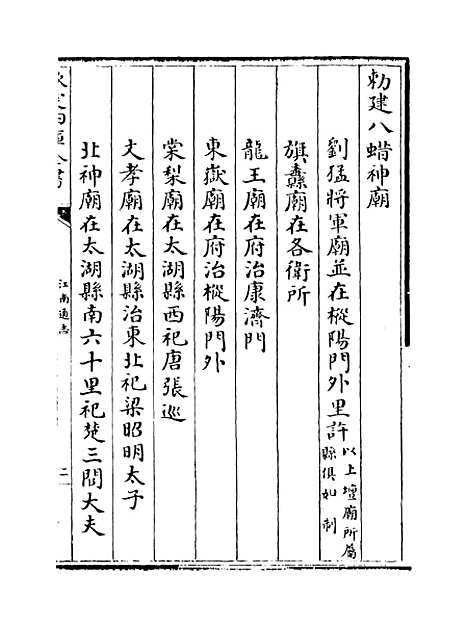 勅建八蜡神廟
劉猛將軍廟並在樅陽門外里許以上壇廟所屬縣俱如制
旗纛廟在各衛所
龍王廟在府治康濟門
東嶽廟在府治樅陽門外
棠梨廟在太湖縣西祀唐張巡
文孝廟在太湖縣治東北祀梁昭明太子
北神廟在太湖縣南六十里祀楚三閭大夫
欽定四庫全書
江南通志
二